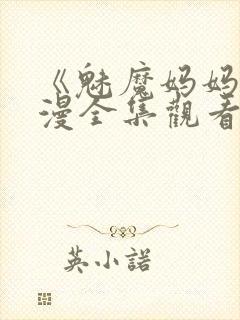 《魅魔妈妈
漫全集觀看
英小諾